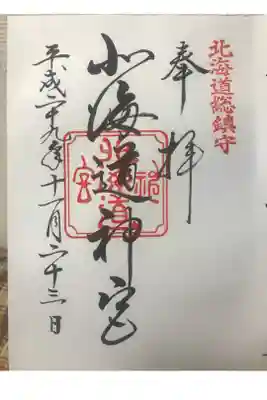 北海道総鎮守
奉拝
北海道神宮
平成二十九年十一月二十三日